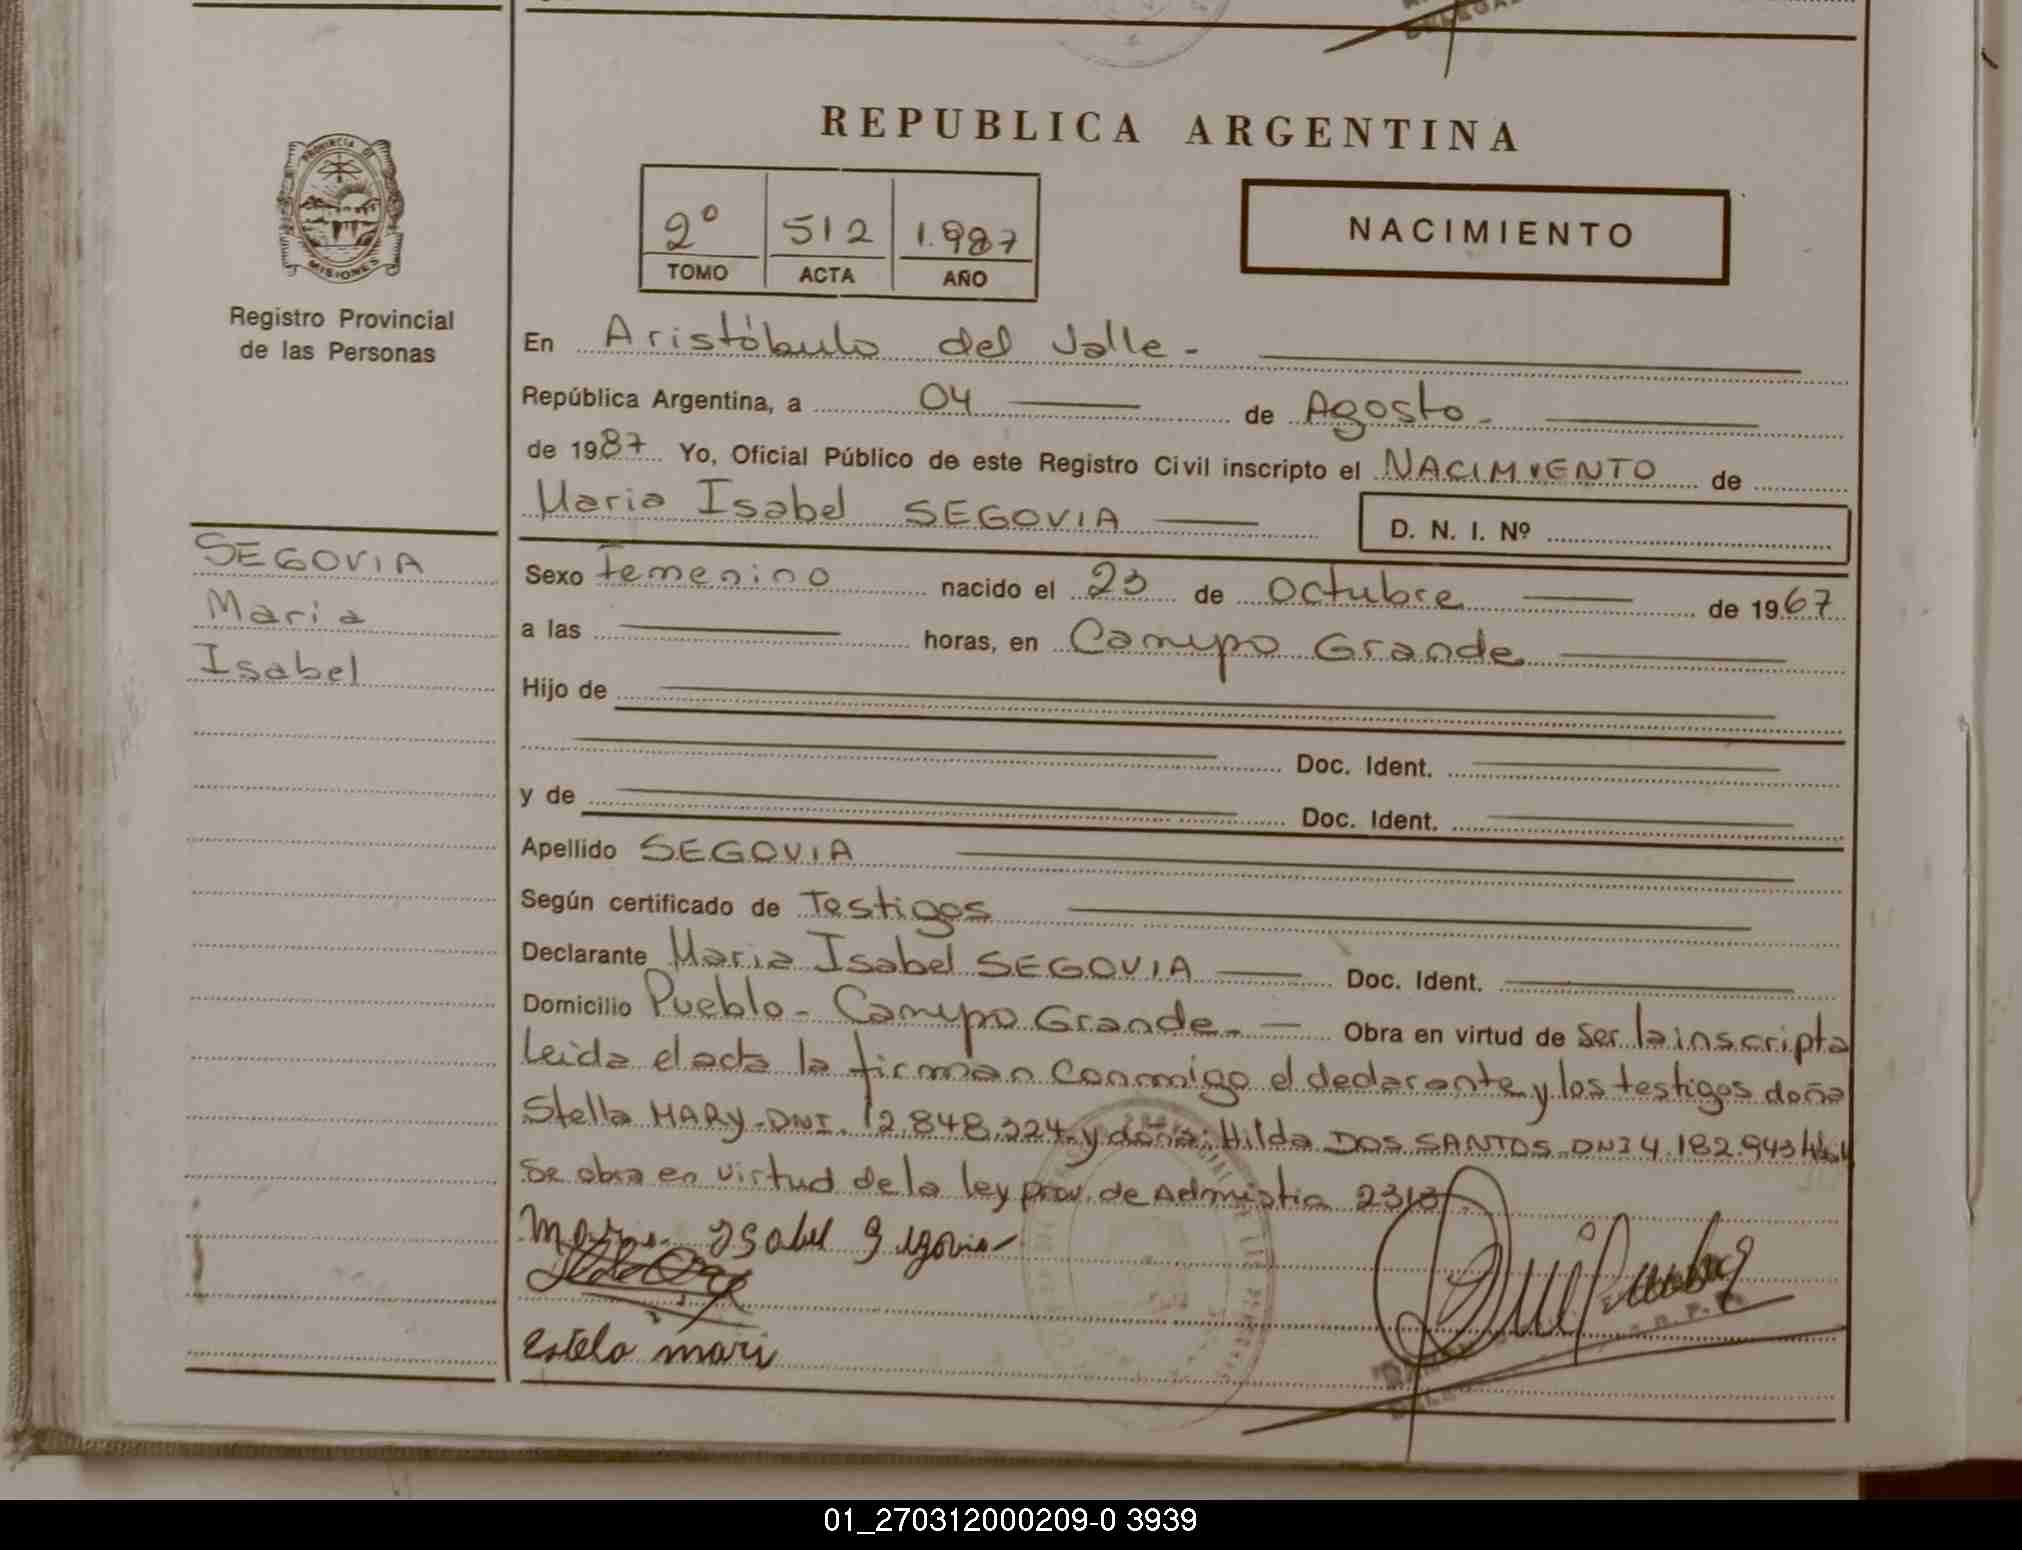 REPUBLICA ARGENTINA
PROVINCIA DE
MISIONES
Registro Provincial
de las Personas
2º 512 1.987
TOMO ACTA AÑO
NACIMIENTO
En Aristóbulo del Valle -
República Argentina, a 04 de Agosto -
de 1987 Yo, Oficial Público de este Registro Civil inscripto el NACIMIENTO de
Maria Isabel SEGOVIA
D. N. I. Nº
SEGOVIA
Maria
Isabel
Sexo Femenino nacido el 23 de Octubre de 1967
a las horas, en Campo Grande
Hijo de
Doc. Ident.
y de Doc. Ident.
Apellido SEGOVIA
Según certificado de Testigos
Declarante Maria Isabel SEGOVIA Doc. Ident.
Domicilio Pueblo - Campo Grande - Obra en virtud de ser la inscripta
Leida el acta la firman conmigo el declarante y los testigos doña
Stella MARY - DNI. 12.848.224 y doña: Hilda DOS SANTOS DNI 4.182.943
Se obra en virtud de la ley prov. de Admistia 2313
Maria Isabel Segovia
Estela mari
01_270312000209-0 3939